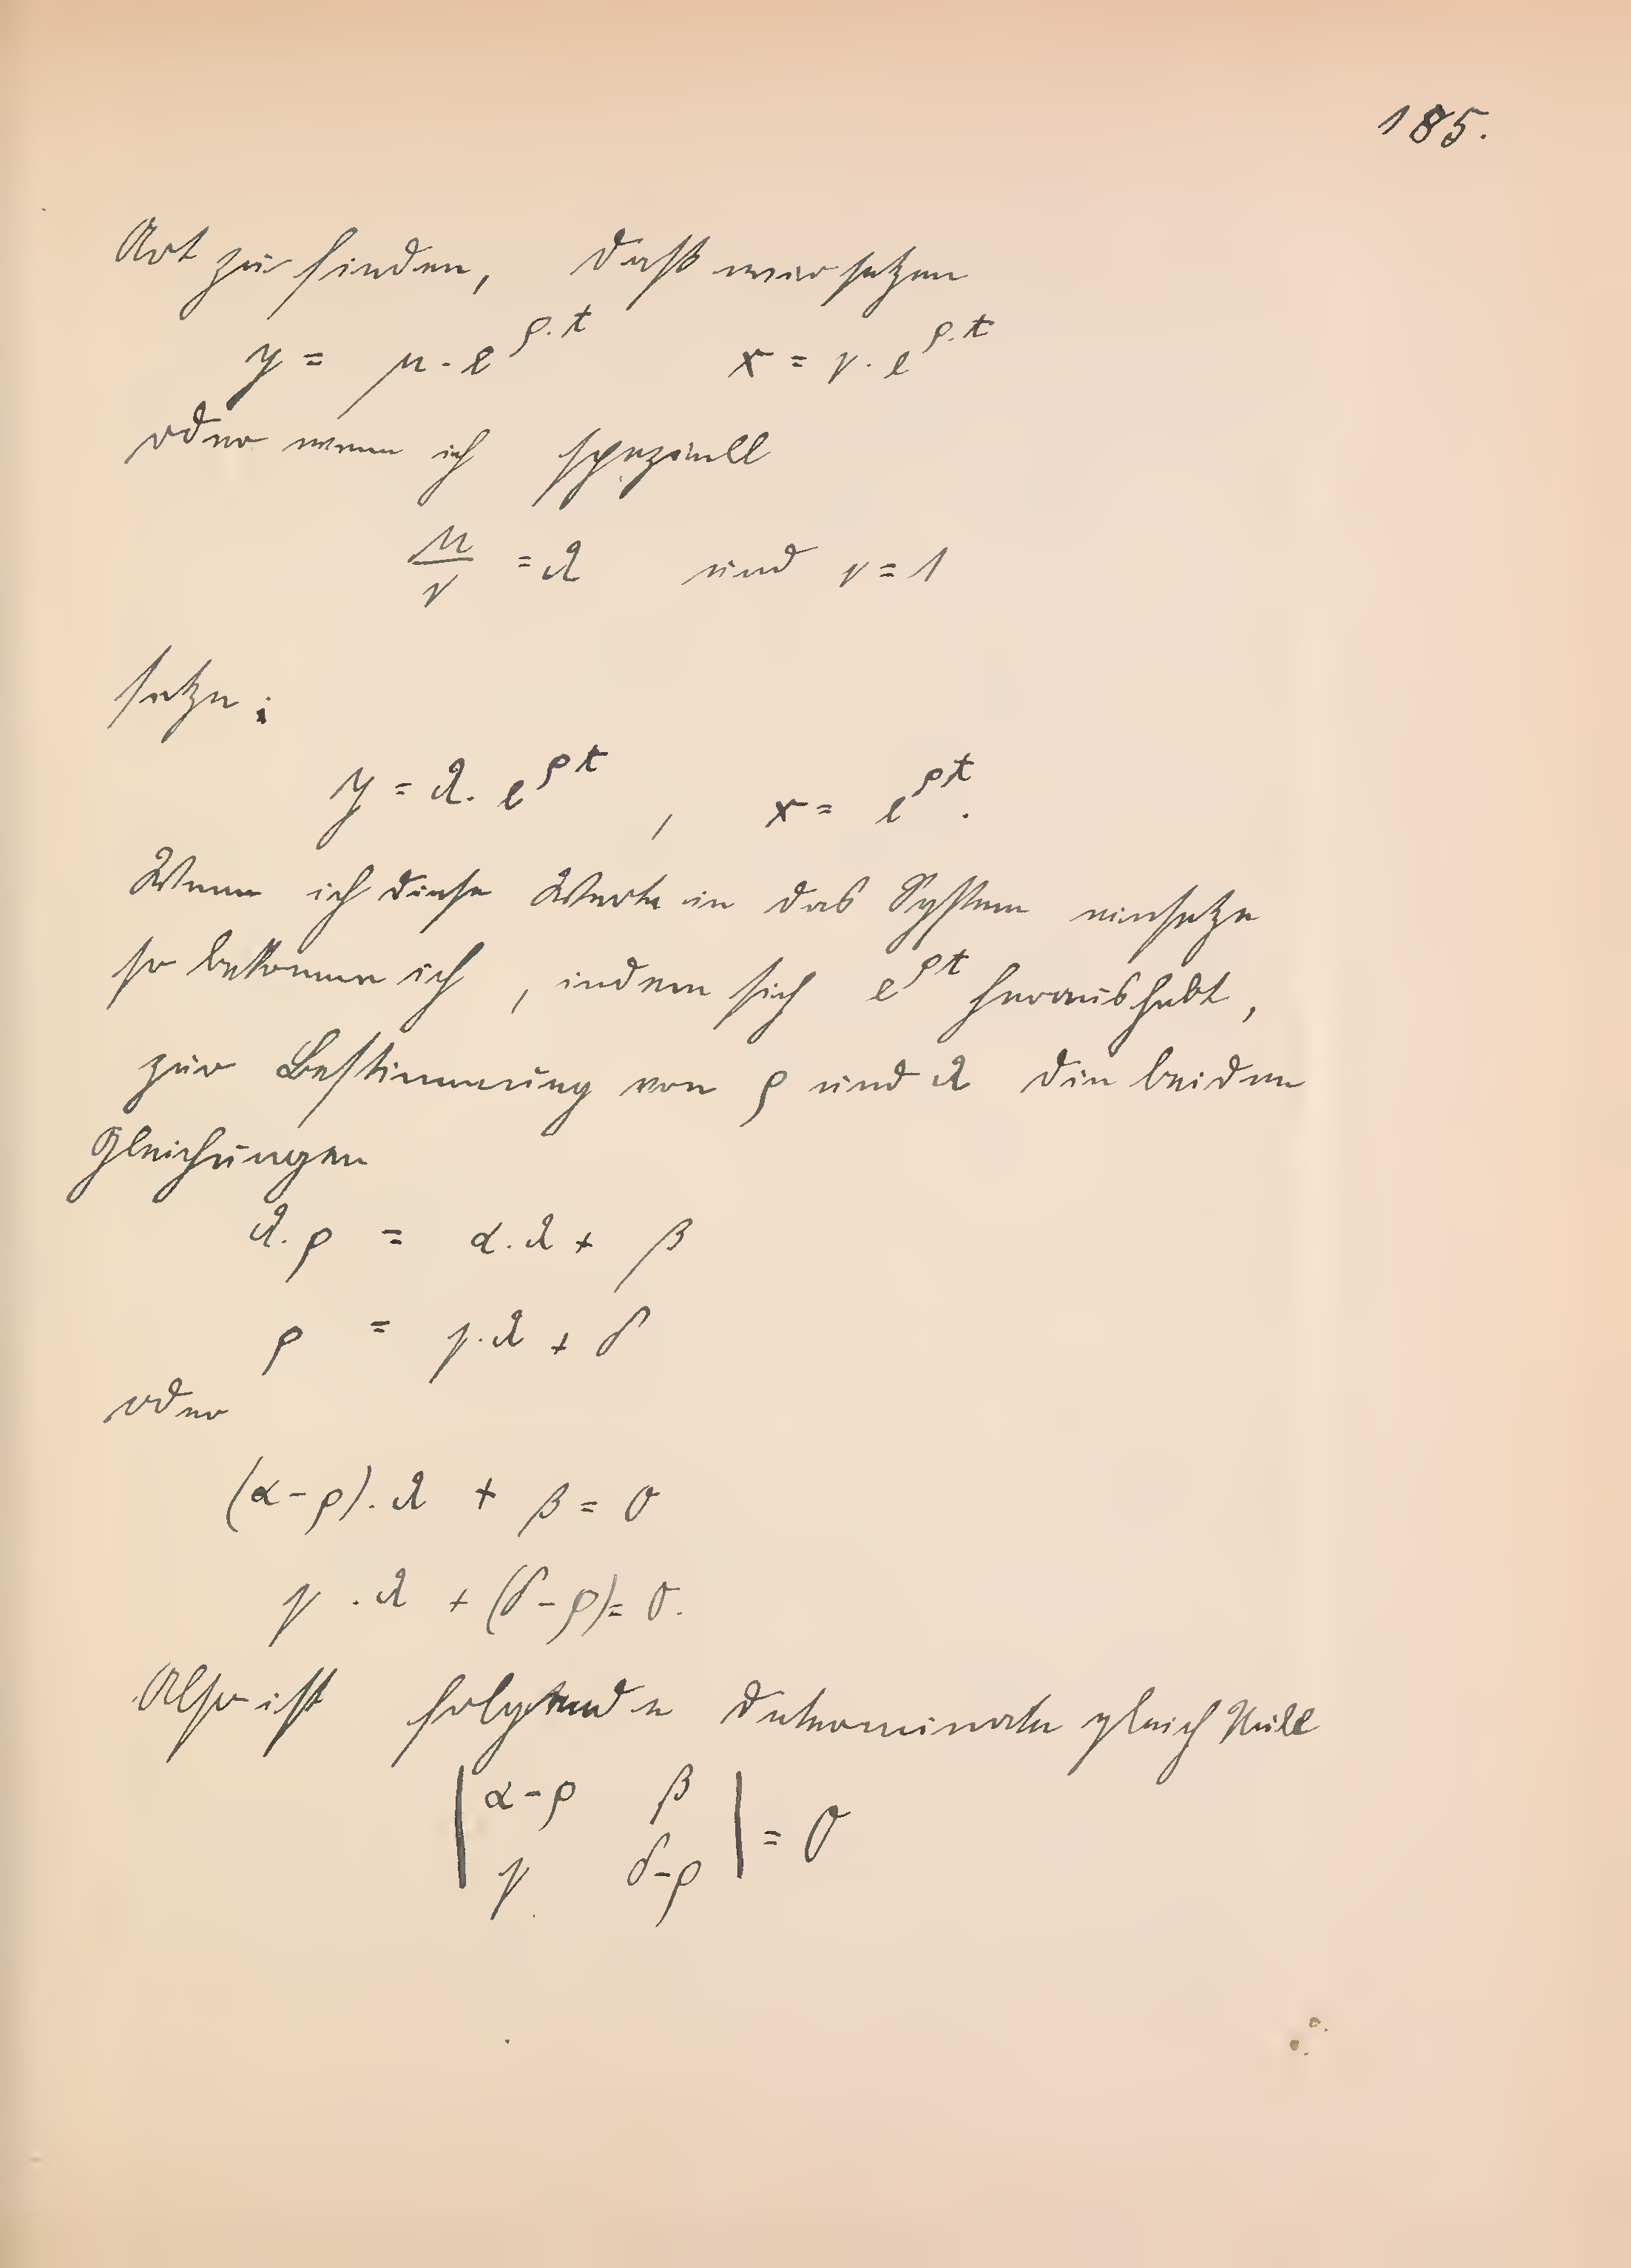 185.
Art zu finden, daß wir setzen
y = μ · e^{ρ·t} x = ν · e^{ρ·t}
oder wenn ich speziell
μ/ν = λ und ν = 1
setze:
y = λ · e^{ρt}, x = e^{ρt}.
Wenn ich diese Werte in das System einsetze
so bekomme ich, indem sich e^{ρt} heraushebt,
zur Bestimmung von ρ und λ die beiden
Gleichungen
λ · ρ = α · λ + β
ρ = γ · λ + δ
oder
(α - ρ) · λ + β = 0
γ · λ + (δ - ρ) = 0.
Also ist folgende Determinate gleich Null
| α - ρ β |
| γ δ - ρ | = 0